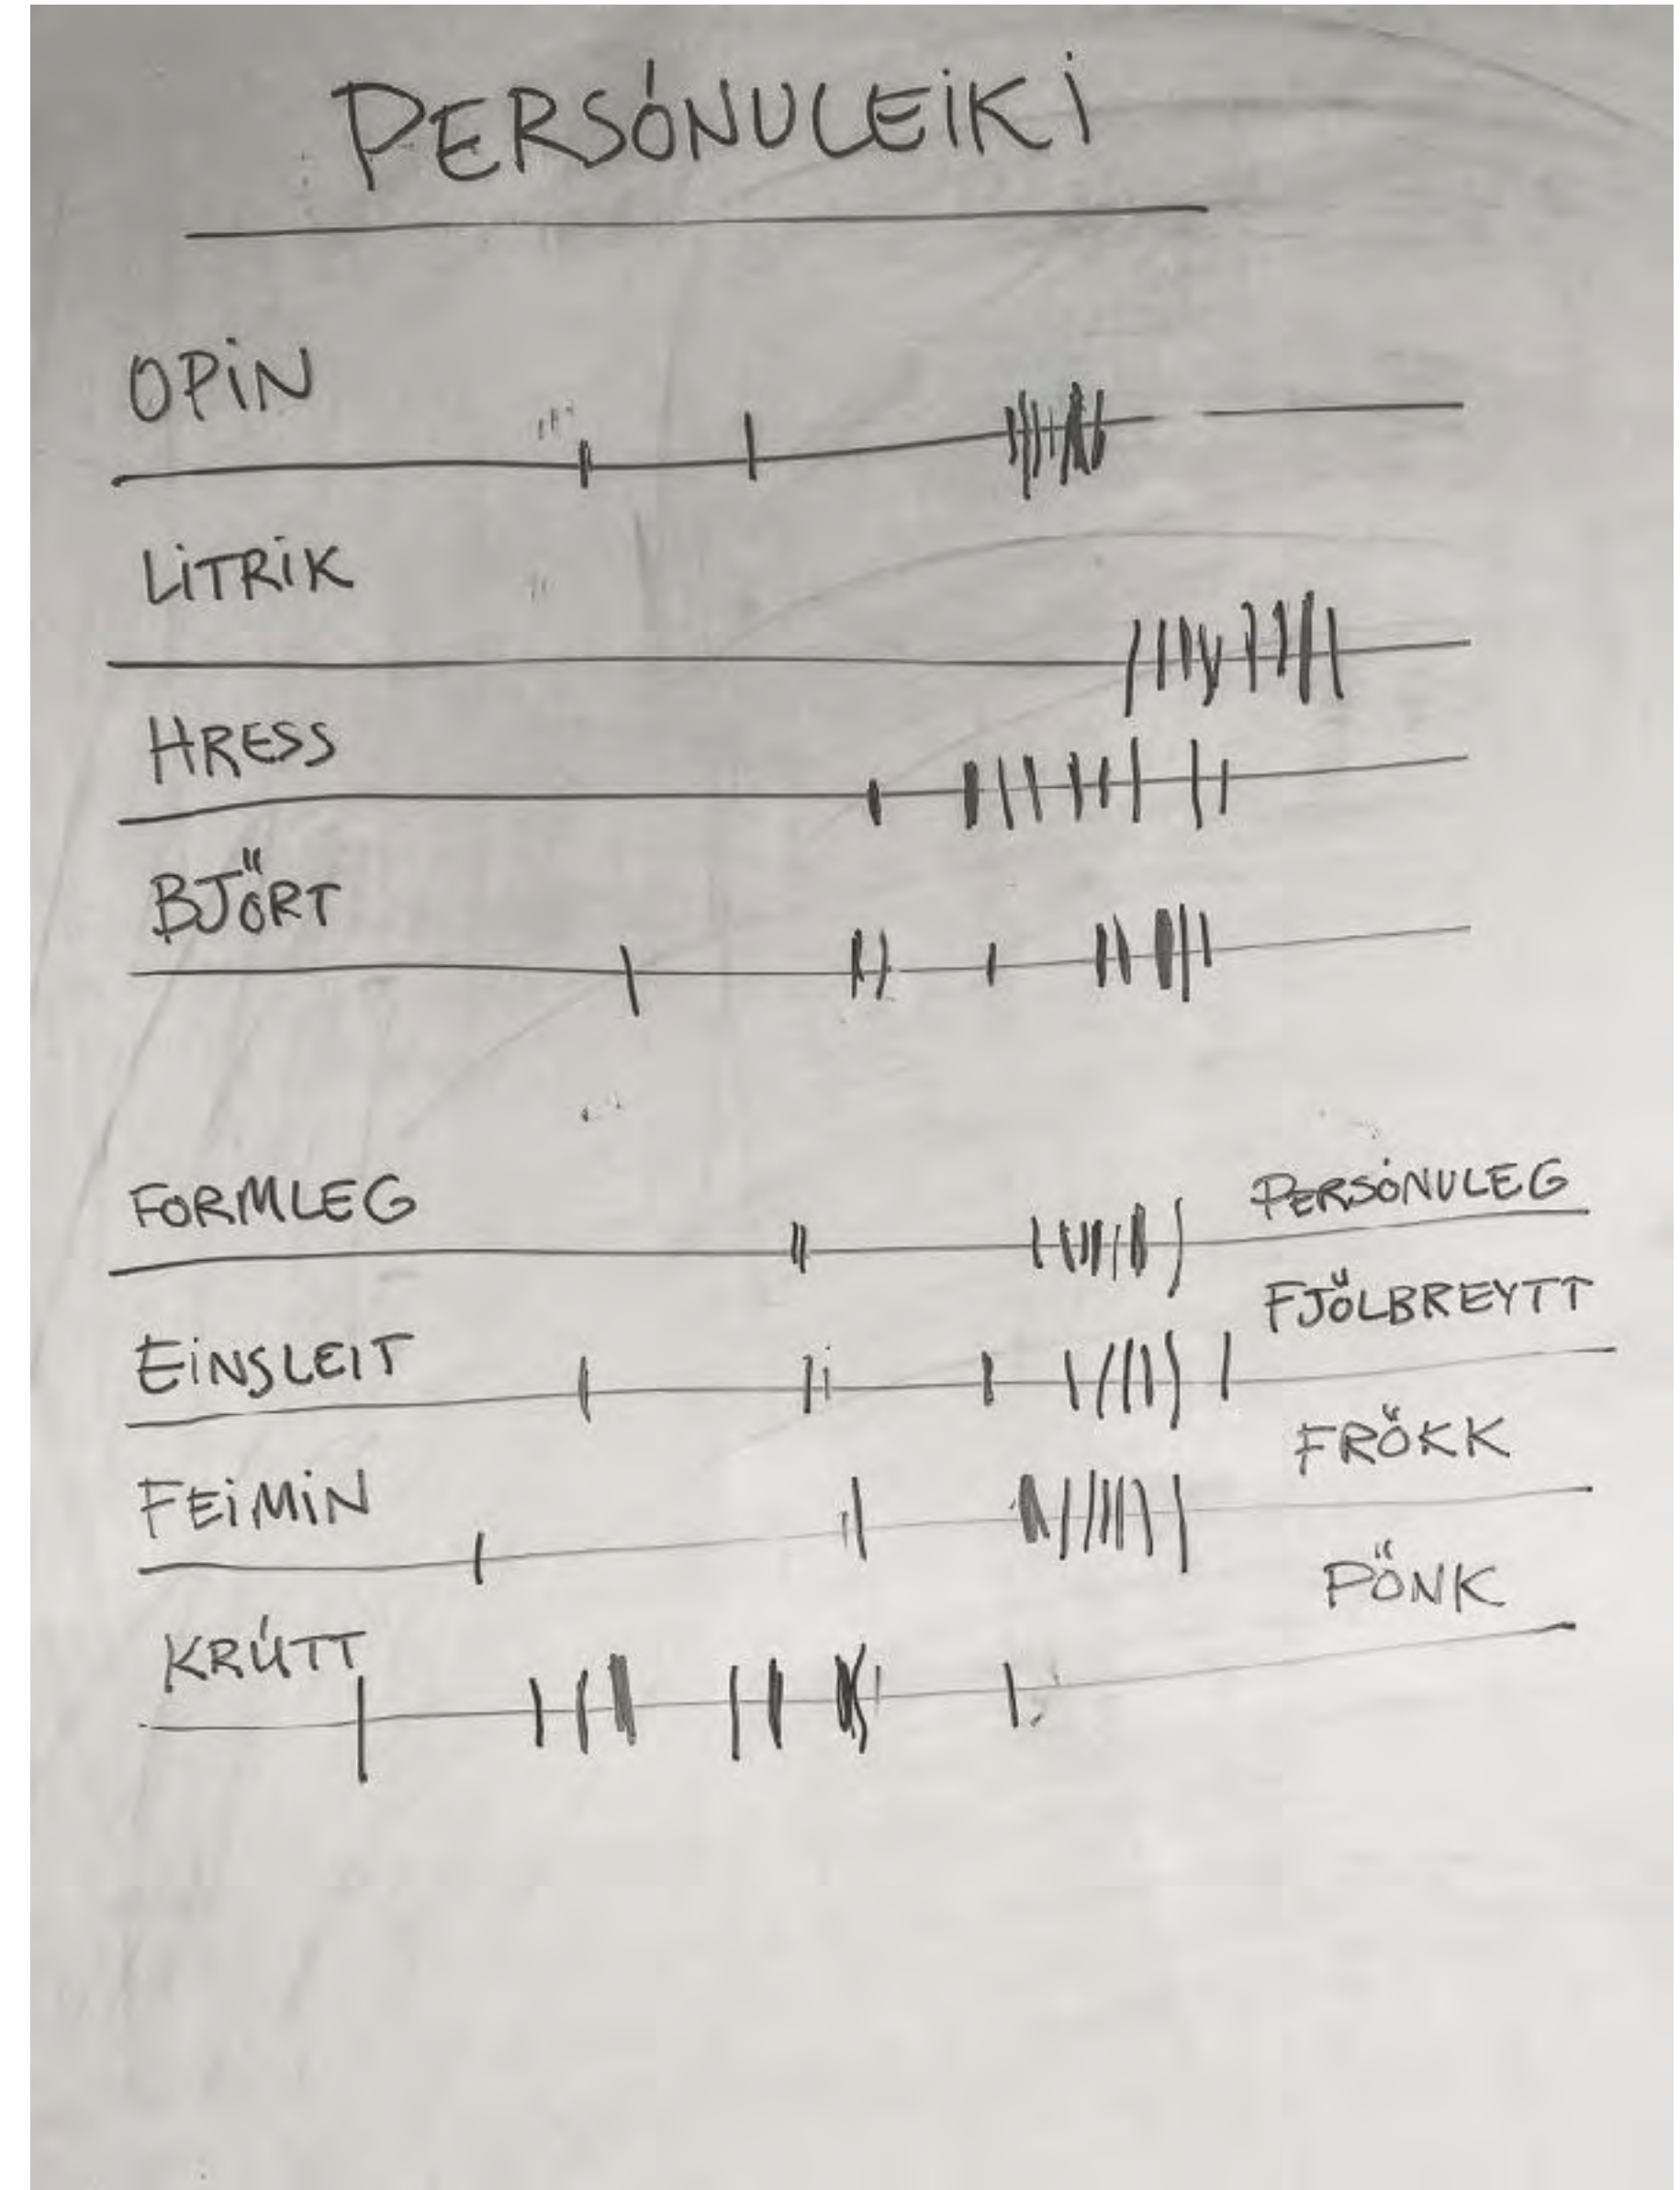 PERSÓNULEIKI
OPIN
LITRIK
HRESS
BJÖRT
FORMLEG PERSÓNULEG
EINSLEIT FJÖLBREYTT
FEIMIN FRÖKK
KRÚTT PÖNK